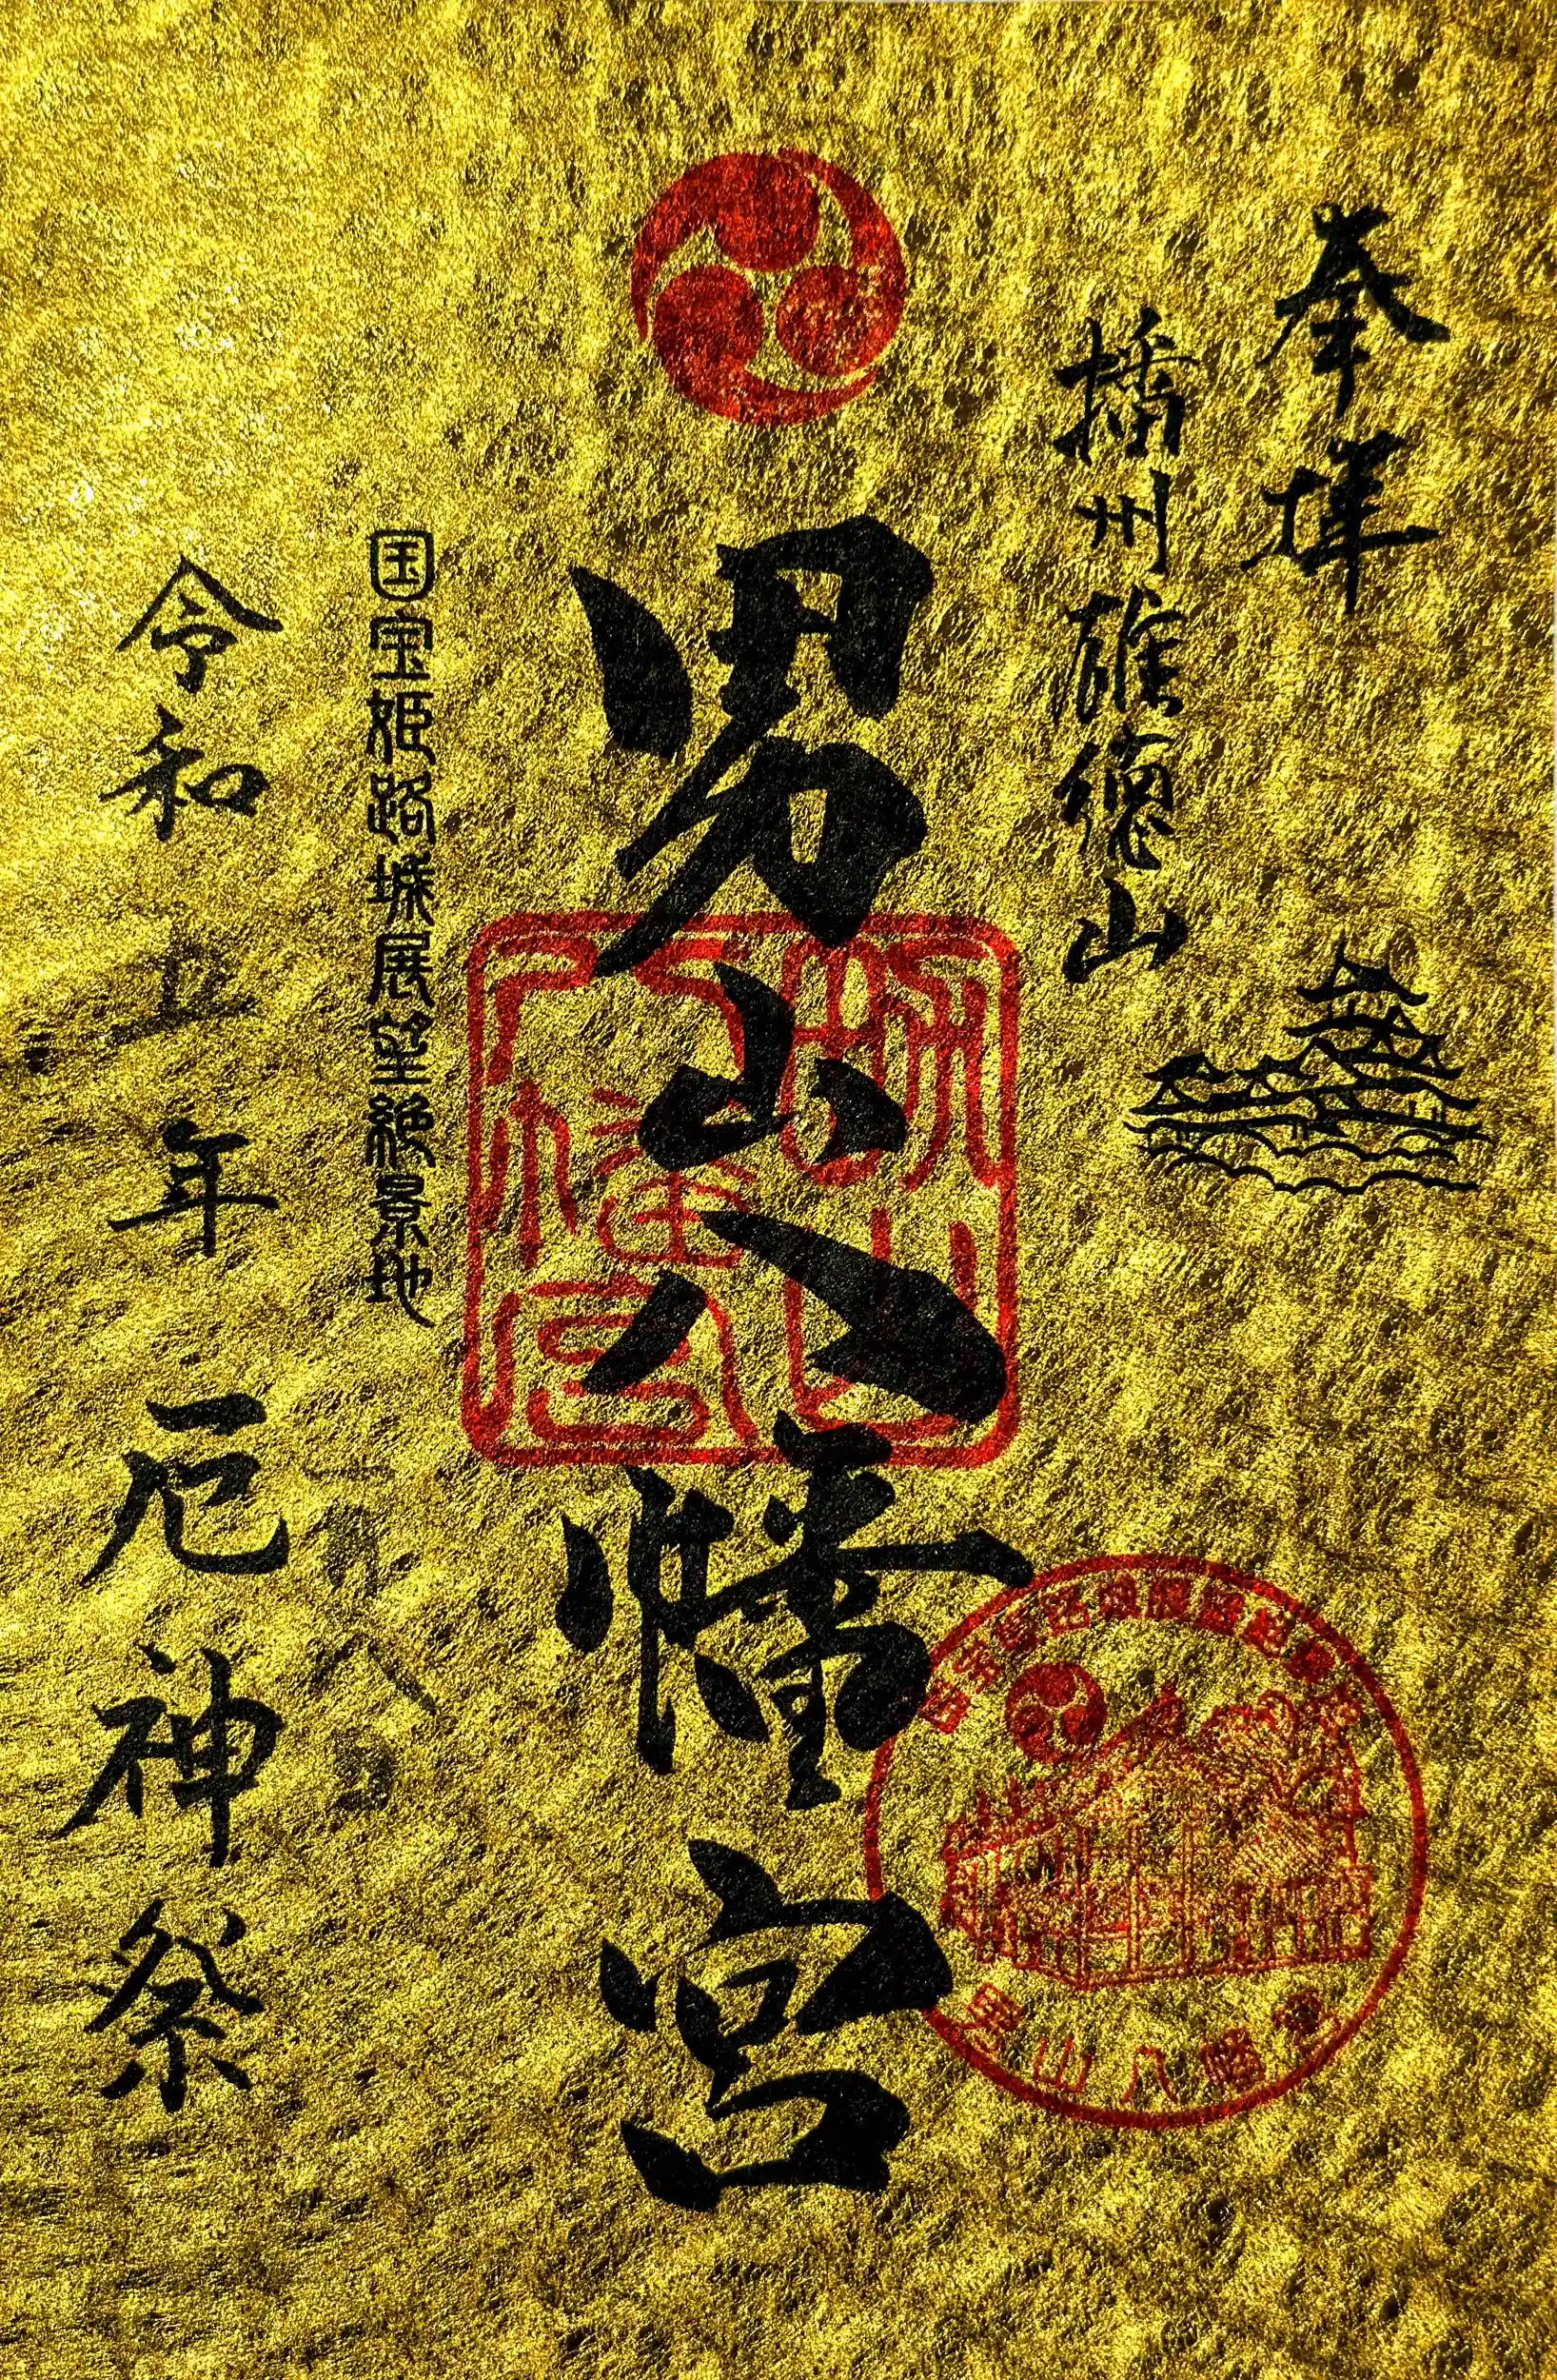 奉拝
播州雄徳山
男山八幡宮
国宝姫路城展望絶景地
令和 年 厄神祭
男山
八幡宮
男山八幡宮